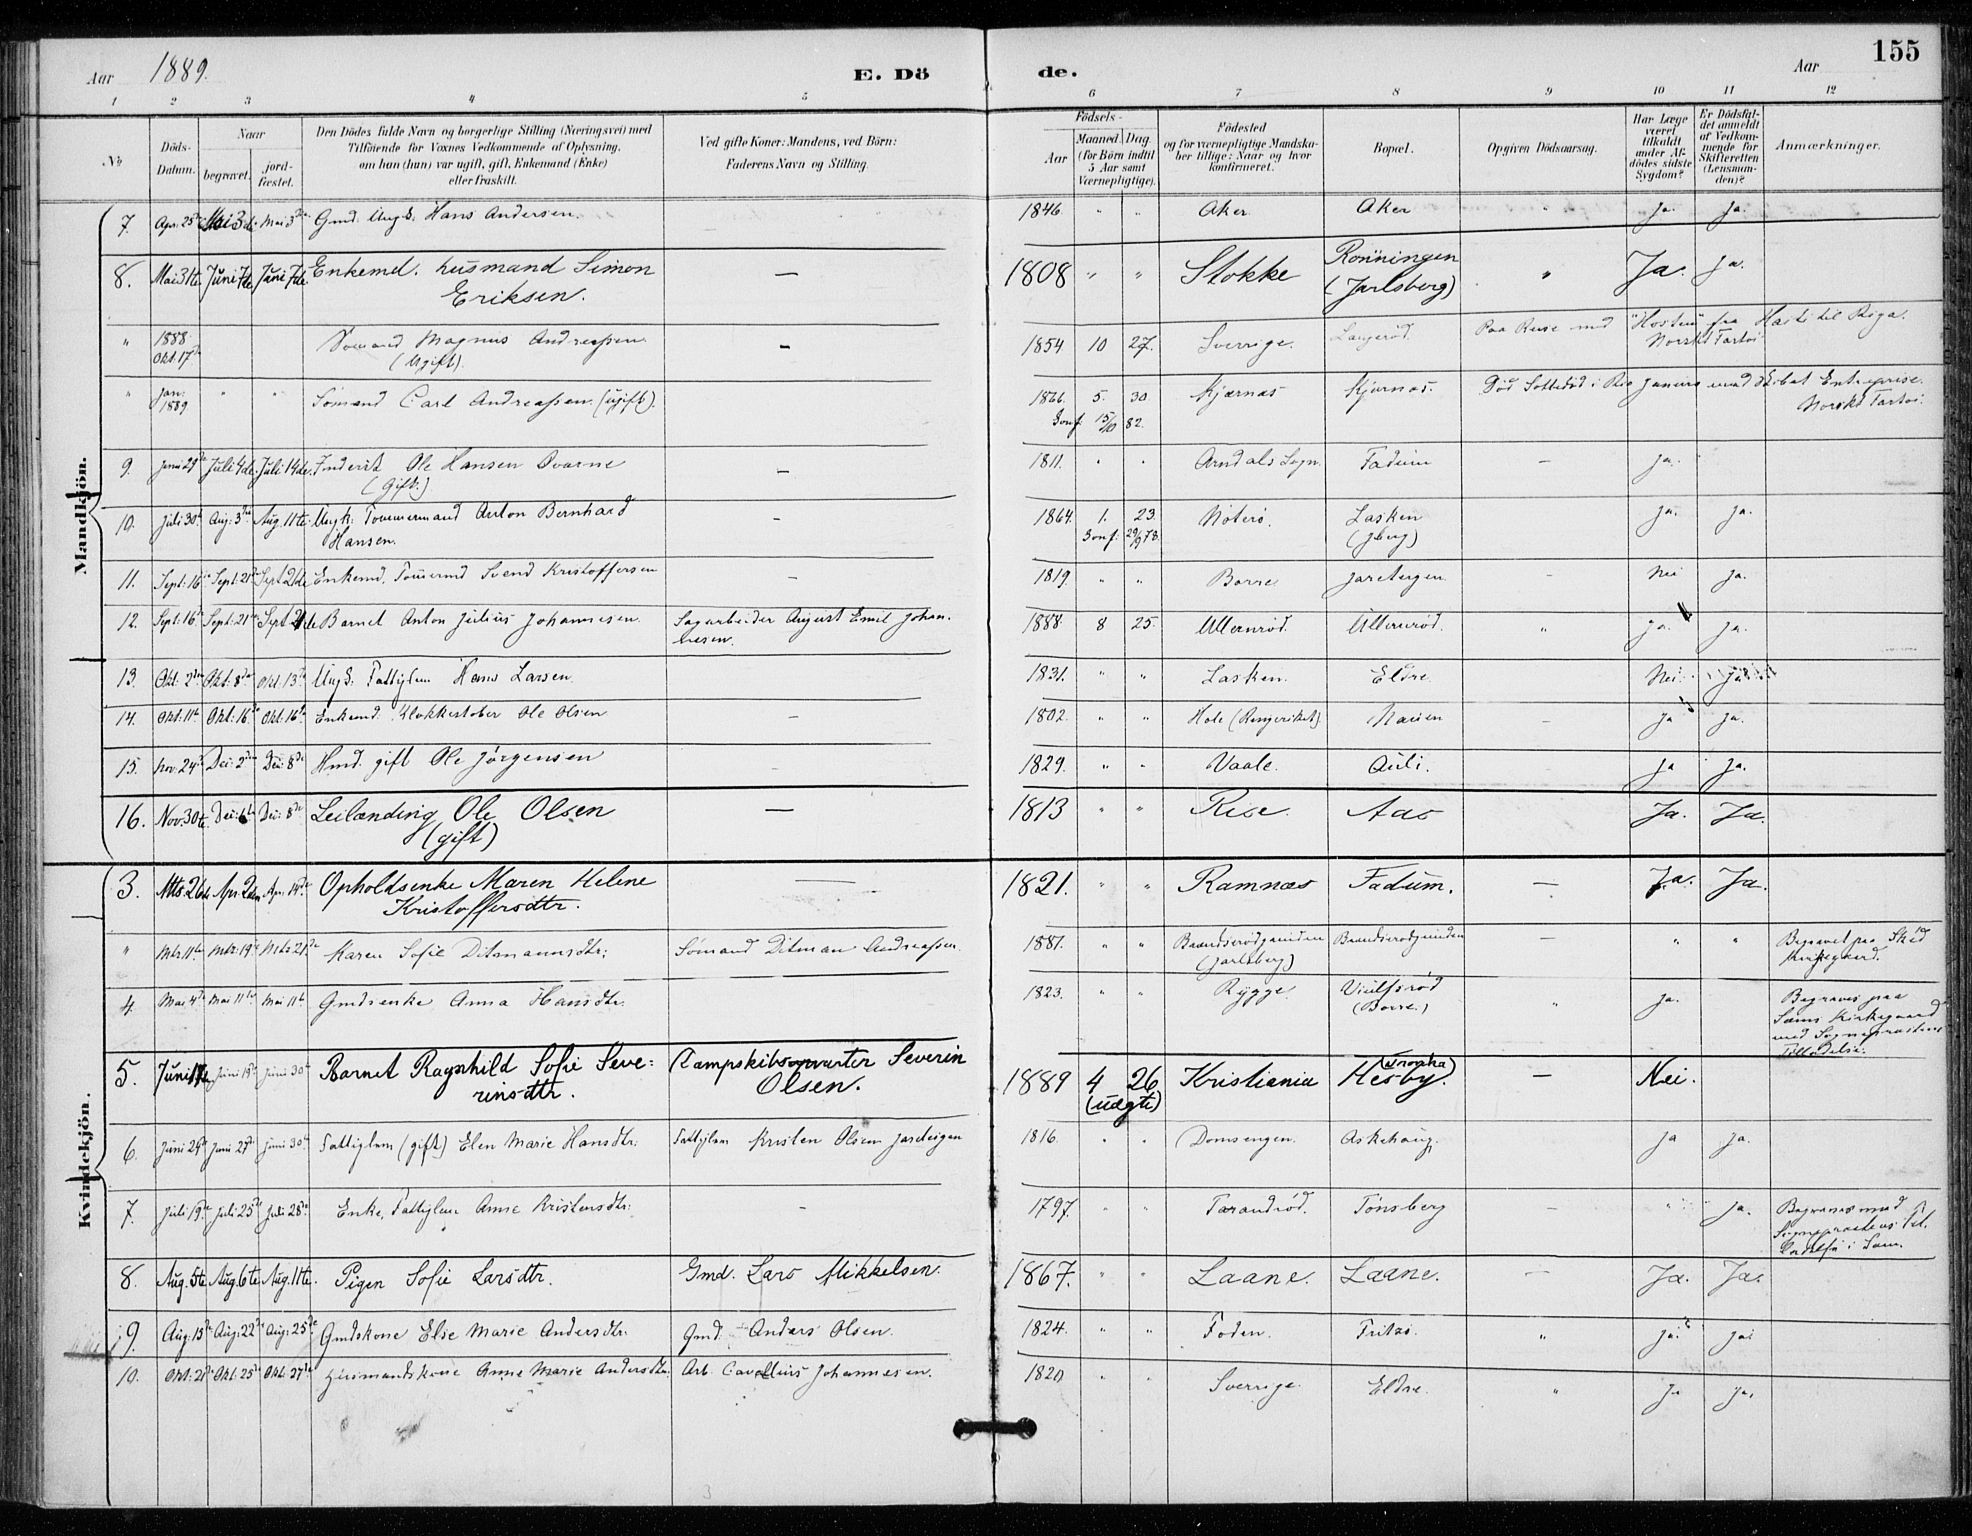 155
Aar 1889. E. Dö de. Aar
1 2 3 4 5 6 7 8 9 10 11 12
No
Döds-Datum.
Naar
begravet.
jord-fæstet.
Den Dödes fulde Navn og borgerlige Stilling (Næringsvei) med
Tilföiende for Voxnes Vedkommende af Oplysning,
om han (hun) var ugift, gift, Enkemand (Enke)
eller fraskilt.
Ved gifte Koner: Mandens, ved Börn:
Faderens Navn og Stilling.
Födsels-
Aar
Maaned. Dag.
(for Börn indtil
5 Aar samt
Værnepligtige).
Födested
og for værnepligtige Mandska-
ber tillige: Naar og hvor
konfirmeret.
Bopæl.
Opgiven Dödsaarsag.
Har Læge
været
tilkaldt
under Af-
dödes sidste
Sygdom?
Er Dödsfal-
det anmeldt
af Vedkom-
mende for
Skifteretten
(Lensman-
den)?
Anmærkninger.
Mandkjön.
7. Apr. 25de Mai 3de Mai 3de Gmd. Ungk. Hans Andersen. 1846 " " Aker Aker " Ja. Ja.
8. Mai 31te Juni 7de Juni 7de Enkemd. husmand Simon — 1808 " " Stokke Rönningen " Ja. Ja.
Eriksen. (Jarlsberg)
" 1888 Okt. 17de Sömand Magnus Andreassen — 1854 10 27. Sverrige. Langeröd. Paa Reise med "Hosten" fra Haiti til Riga.
(Ugift). Norskt Fartöi
" Jan: 1889 " " Sömand Carl Andreassen (ugift). 1866 5. 30 Kjærnæs Kjærnæs. Död Sottedöd i Rio Janeiro med Skibet Entreprise.
Konf. 15/10 82. Norskt Fartöi.
9. Juni 29de Juli 4de. Juli 14de. Inderst Ole Hansen Qvarne — 1811. " " Arndals Sogn. Fadum — Ja.
(gift.)
10. Juli 30te Aug: 3die Aug. 11te. Ungk: Tömmermand Anton Bernhard — 1864. 1. 23. Nöterö. Lasken Ja. Ja.
Hansen. Konf. 29/9 78. (Jberg)
11. Sept: 16de Sept: 21de Enkemd. Tömermd Svend Kristoffersen — 1819. " " Borre. Jareteigen — Nei Ja.
12. Sept: 16de Sept: 21de Barnet Anton Julius Johannesen. Sagarbeider August Emil Johan- 1888 8 25. Ullernröd. Ullernröd. " Ja. Ja.
nesen.
13. Okt: 2den Okt: 8de Okt. 13de Ungk: Fattiglem Hans Larsen. 1831. " " Lasken. Eldre. Nei. Ja.
14. Okt: 11te Okt: 16de Okt. 16de Enkemd. Klokkestöber Ole Olsen — 1802. " " Hole (Ringeriket) Nauen — Ja Ja.
15. Nov. 24de Dec: 2den Dec: 8de Hmd. gift Ole Jörgensen — 1829. " " Vaale. Auli. Ja Ja.
16. Nov. 30te Dec: Dec: 8de Leilænding Ole Olsen — 1813 " " Rise. Aas Ja. Ja.
(gift)
Kvindekjön.
3. Mts. 26de Apr. 2den Apr. 14de Opholdsenke Maren Helene — 1821. " " Ramnæs Fadum. — Ja. Ja.
Kristoffersdtr.
" Mts. 11te Mts. 19de Mts. 21de Karen Sofie Ditmannsdtr: Sömand Ditman Andreassen. 1881. " " Brændsrödgrinden Brændsrödgrinden — " " Begravet paa Skëd
(Jarlsberg) Kirkegaard.
4. Mai 4de Mai 11te Mai 11te Gmdsenke Anna Hansdtr. 1823. " " Rygge Viulfsröd " Ja. Begraves paa
(Borre.) Sems Kirkegaard
med Sognepræstens
Tilladelse.
5. Juni 17de Juni 19de Juni 30te Barnet Ragnhild Sofie Seve: Dampskibsopvarter Severin 1889 4 26 Kristiania Hesby. — Nei.
rinsdtr. Olsen. (uægte)
6. Juni 24de Juni 27de Juni 30te Fattiglem (gift) Elen Marie Hansdtr: Fattiglem Kristen Olsen Jareteigen 1816. " " Domsengen. Askehaug. Ja Ja.
7. Juli 19de Juli 25de Juli 28de Enke, Fattiglem Anne Kristensdtr: — 1797. " " Tarandröd. Tönsberg " Ja. Begraves med
Sognepræstens Til-
ladelse i Sem.
8. Aug. 5te Aug. 6te Aug. 11te. Pigen Sofie Larsdtr. Gmd. Lars Mikkelsen. 1867. " " Laane. Laane. — Ja. Ja.
9. Aug: 15de Aug: 22de Aug: 25de Gmdskone Else Marie Andersdtr. Gmd. Anders Olsen. 1824. " " Foden. Fritzö. " Ja. Ja.
10. Okt: 21de Okt: 25de Okt. 27de Husmandskone Anne Marie Andersdtr. Arb. Cavallius Johannesen. 1820 " " Sverrige. Eldre. " Ja Ja.